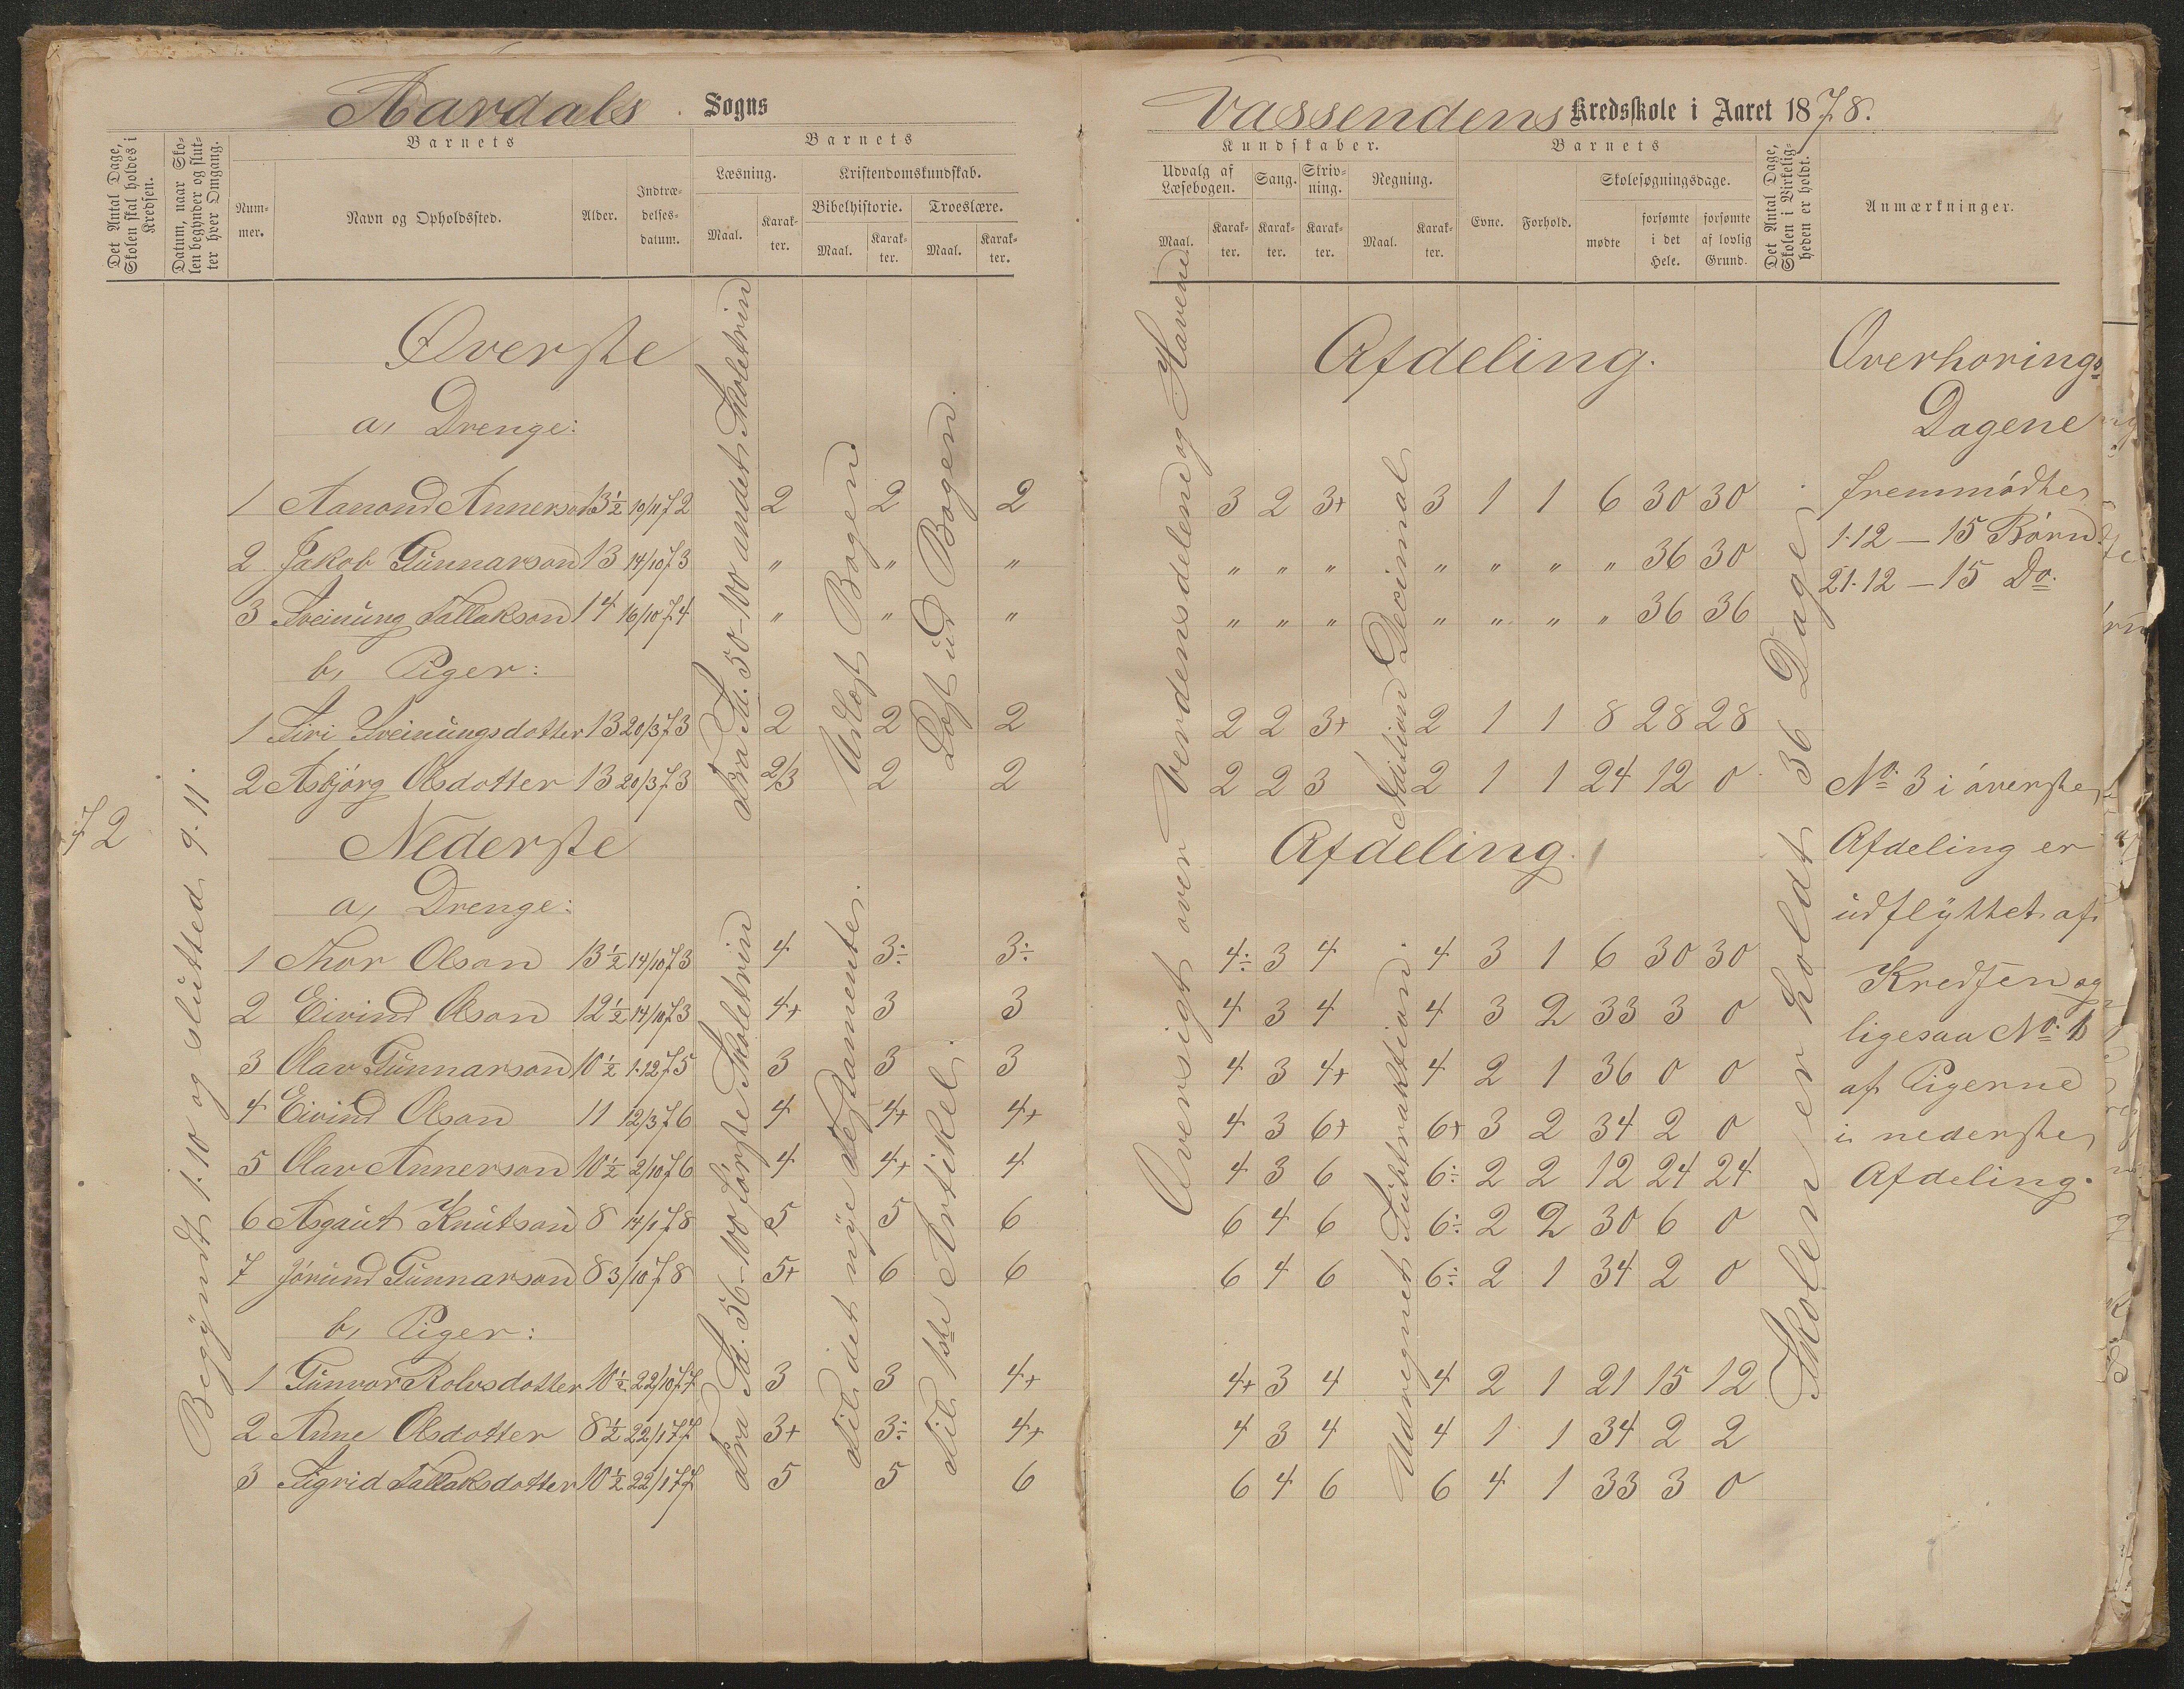 Aardals Sogns
Det Antal Dage, Skolen skal holdes i Kredsen.
Datum, naar Skolen begynder og slutter hver Omgang.
Barnets
Nummer.
Navn og Opholdssted.
Alder.
Indtrædelsesdatum.
Barnets
Læsning.
Maal.
Karakter.
Kristendomskundskab.
Bibelhistorie.
Maal.
Karakter.
Troeslære.
Maal.
Karakter.
72
Begÿndt 1.10 og slütted 9.11.
Øverste
a, Drenge:
1 Aanond Annerson 13½ 10/11 72 2 2 2
2 Jakob Günnarson 13 14/10 73 " " "
3 Sveinüng Tallakson 14 16/10 74 " " "
b, Piger:
1 Siri Sveinüngsdotter 13 20/3 73 2 2 2
2 Asbjörg Olsdotter 13 20/3 73 2/3 2 2
Fra Sd. 50-100 andet Skoletrin
Udlagt Bogen
Lagt üd Bogen.
Nederste
a, Drenge:
1 Thor Olson 13½ 14/10 73 4 3÷ 3÷
2 Eivind Olson 12½ 14/10 73 4+ 3 3
3 Olav Günnarson 10½ 1.12 75 3 3 3
4 Eivind Olson 11 12/3 76 4 4+ 4+
5 Olav Annerson 10½ 2/10 76 4 4+ 4
6 Asgaüt Knütson 8 14/1 78 5 5 6
7 Jöründ Günnarson 8 3/10 78 5+ 6 6
b, Piger:
1 Günvor Rolvsdotter 10½ 22/10 77 3 3 4+
2 Anne Olsdotter 8½ 22/1 77 3+ 3÷ 4+
3 Sigrid Tallaksdotter 10½ 22/1 77 5 5 6
Fra Sd. 56-100 förste Skoletrin
Til det nÿe Testamente.
Til 1ste Artikel.
Vassendens Kredsskole i Aaret 1878.
Kundskaber.
Udvalg af Læsebogen.
Maal.
Karakter.
Sang.
Karakter.
Skrivning.
Karakter.
Regning.
Maal.
Karakter.
Barnets
Evne.
Forhold.
Skolesøgningsdage.
mødte
forsømte i det Hele.
forsømte af lovlig Grund.
Det Antal Dage, Skolen i Virkeligheden er holdt.
Anmærkninger.
Oversigt over Verdensdelene og Havene
Afdeling.
3 2 3+ 3 1 1 6 30 30
" " " " " " " 36 30
" " " " " " " 36 36
2 2 3+ 2 1 1 8 28 28
2 2 3 2 1 1 24 12 0
Addition Decimal
Afdeling.
4÷ 3 4 4 3 1 6 30 30
4 3 4 4 3 2 33 3 0
4 3 4+ 4 2 1 36 0 0
4 3 6+ 6+ 3 2 34 2 0
4 3 6 6÷ 2 2 12 24 24
6 4 6 6÷ 2 2 30 6 0
6 4 6 6÷ 2 1 34 2 0
4+ 3 4 4 2 1 21 15 12
4 3 4 4 1 1 34 2 2
6 4 6 6 4 1 33 3 0
Udregnet Sübtraktion.
Skolen er holdt 36 Dage
Overhorings-
Dagene
fremmödte
1.12 — 15 Börn.
21.12 — 15 Do.
No. 3 i överste
Afdeling er
üdflÿttet af
Kredsen og
ligesaa No. 1
af Pigerne
i nederste
Afdeling.